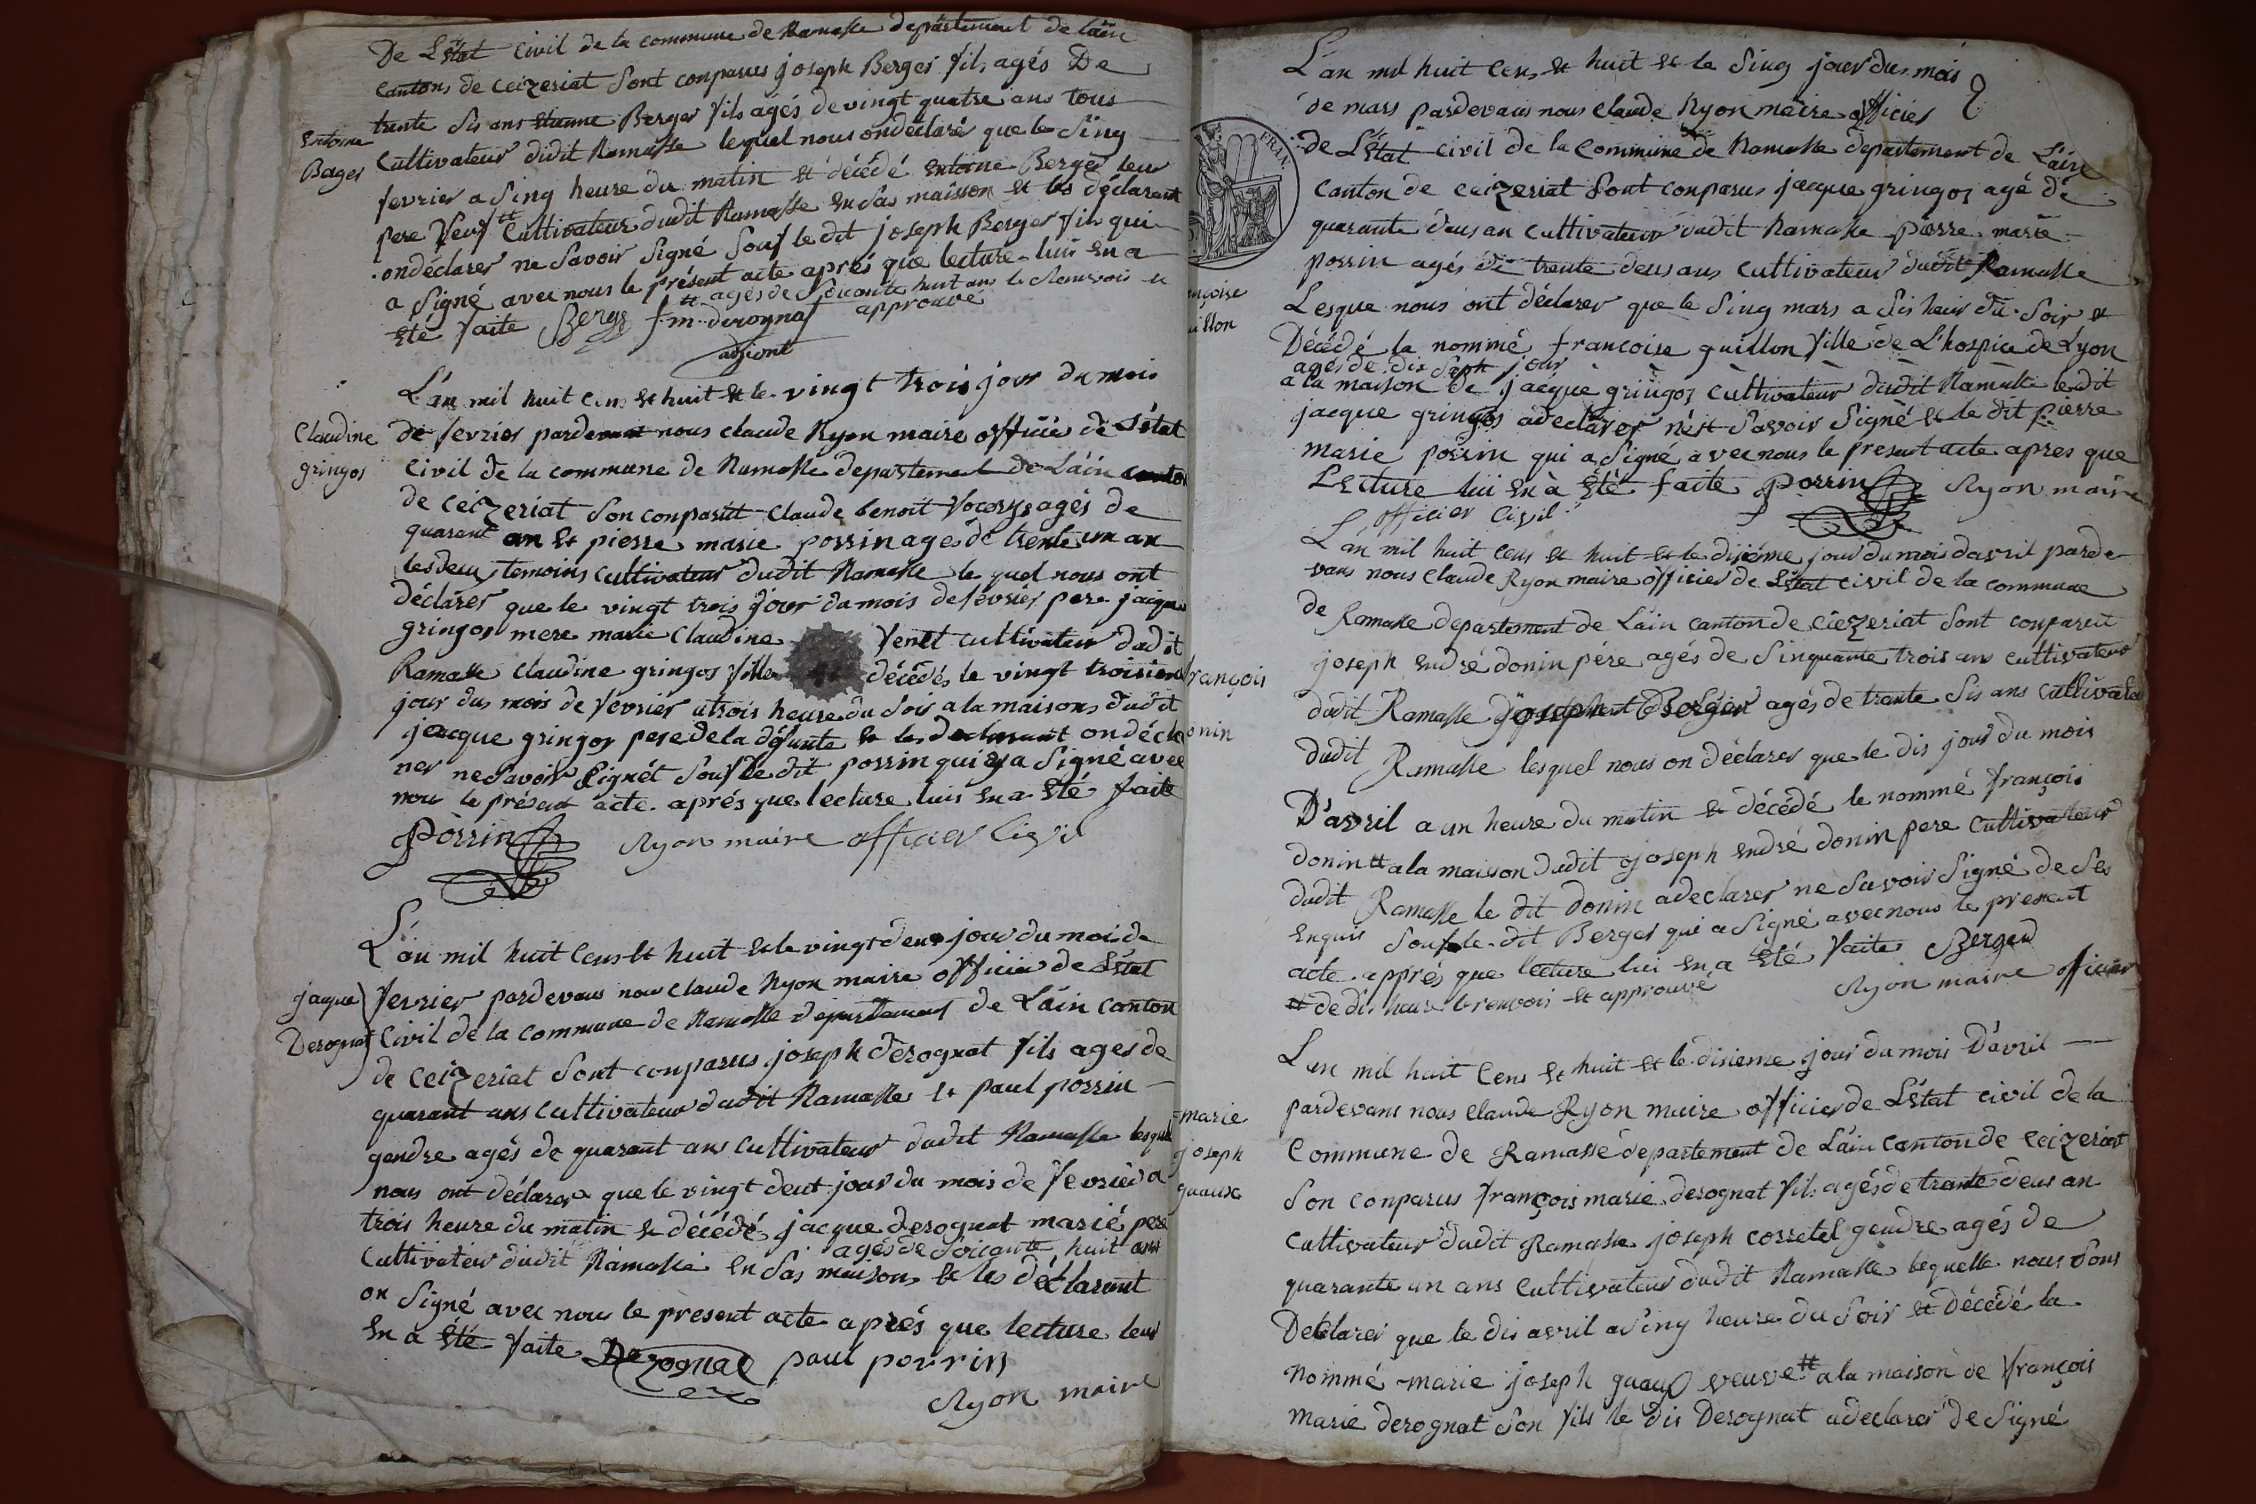 De L'état civil de la commune de Ramasse département de lain
cantons de ceizeriat sont conparus joseph Berger fils agés De
trente sis ans etienne Berger fils agés de vingt quatre ans tous
Entoine
Berger
Cultivateur dudit Ramasse lequel nous ondéclaré que le sinq
fevrier a sinq heure du matin et décédé entoine Berger leur
pere veuf Cultivateur dudit Ramasse en sas maison et les déclarant
ondéclarer ne savoir signé souf le dit joseph Berger fils qui
a signé avec nous le présent acte aprés que lecture luis en a
tt agés de soicante huit ans le Renvois et
été faite Berger f.m. derognat approuvé
adjoint
L'an mil huit cens et huit et le vingt trois jour du mois
Claudine
gringos
de fevrier pardevant nous claude Ryon maire officié de L'état
civil de la commune de Ramasse departement de Lain canton
de ceizeriat son conparut Claude benoit agés de
quarant an et pierre marie porrin agé de trente un an
les deux temoins cultivateur dudit Ramasse le quel nous ont
déclarer que le vingt trois jour du mois de fevrier pere jacque
gringos mere marie Claudine venet cultivateur dudit
Ramasse Claudine gringos fille décédés le vingt troisieme
jour du mois de fevrier a trois heure du soir a la maison dudit
jacque gringos pere de la défunte et les declarant ondécla
rer ne savoir signét souf le dit porrin qui a signé avec
nous le présent acte aprés que lecture luis en a été faite
Porrin Ryon maire officier Civil
L'an mil huit cens et huit et le vingt deus jour du mois de
jacque
Derognat
fevrier pardevans nous claude Ryon maire officier de L'état
civil de la commune de Ramasse departement de Lain canton
de ceizeriat sont conparus joseph derognat fils ages de
quarant ans cultivateur dudit Ramasse et paul porrin
gendre agés de quarant ans cultivateur dudit Ramasse lesquel
nous ont déclarer que le vingt deut jour du mois de fevrier a
trois heure du matin et décédé jacque derognat marié pere
agés de soicante huit ans
cultivateur dudit Ramasse en sas maison et les déclarant
on signé avec nous le present acte aprés que lecture leur
en a été faite Derognat paul porrin
Ryon maire
L'an mil huit cens et huit et le sinq jour du mois
de mars pardevans nous claude Ryon maire officier
FRAN
de L'état civil de la commune de Ramasse departement de Lain
canton de ceizeriat sont conparus jacque gringos agé de
quarante deus an cultivateur dudit Ramasse pierre marie
porrin agés de trente deus ans cultivateur dudit Ramasse
ançoise
uillon
Lesque nous ont déclarer que le sinq mars a sis heur du soir et
Décédé la nommé francoise guillon fille de L'hospice de Lyon
agés de dix sept jour
a la maison de jacque gringos cultivateur dudit Ramasse ledit
jacque gringos adeclarer n'est savoir signé et le dit pierre
marie porrin qui a signe avec nous le present acte apres que
Lecture lui en à été faite Porrin Ryon maire
officier Civil
L'an mil huit cens et huit et le disiéme jour du mois d'avril parde
vans nous Claude Ryon maire officier de L'état civil de la commune
de Ramasse departement de Lain canton de ceizeriat sont conparut
françois
onin
joseph endré donin pére agés de sinquante trois ans cultivateur
dudit Ramasse joseph Berger agés de trante sis ans cultivateur
dudit Ramasse lesquel nous on déclarer que le dis jour du mois
D'avril a un heure du matin et décédé le nommé françois
donin tt a la maison dudit joseph endré donin pere cultivateur
dudit Ramasse le dit donin adeclarer ne savoir signé de ses
enquis souf le dit Berger qui a signé avec nous le present
acte apprés que lecture lui en a été faite Berger
tt de di heure le renvois et approuvé Ryon maire officier
L'an mil huit cens et huit et le disieme jour du mois D'avril
pardevans nous Claude Ryon maire officier de L'état civil de la
marie
joseph
guaux
commune de Ramasse departement de Lain canton de ceizeriat
son conparus françois marie derognat fils agés de trante deus an
cultivateur dudit Ramasse joseph corretel gendre agés de
quarante un ans cultivateur dudit Ramasse lequelle nous sons
Déclarer que le dis avril a sinq heure du soir et décédé la
nommé marie joseph guaux veuve tt a la maison de françois
marie derognat son fils le dis Derognat adeclarer de signé